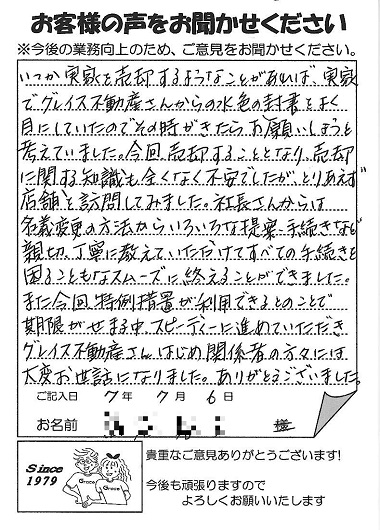 お客様の声をお聞かせください
※今後の業務向上のため、ご意見をお聞かせください。
いつか実家を売却するようなことがあれば、実家
でグレイス不動産さんからの水色の封書をよく
目にしていたのでその時がきたらお願いしようと
考えていました。今回売却することとなり、売却
に関する知識も全くなく不安でしたが、とりあえず
店舗を訪問してみました。社長さんからは
名義変更の方法からいろいろな提案・手続きなど
親切、丁寧に教えていただけてすべての手続きを
困ることもなくスムーズに終えることができました。
また今回特例措置が利用できるとのことで
期限がせまる中、スピーディーに進めていただき
グレイス不動産さんはじめ関係者の方々には
大変お世話になりました。ありがとうございました。
ご記入日 7年 7月 6日
お名前 様
Since
1979
Grace
Grace
貴重なご意見ありがとうございます!
今後も頑張りますので
よろしくお願いいたします